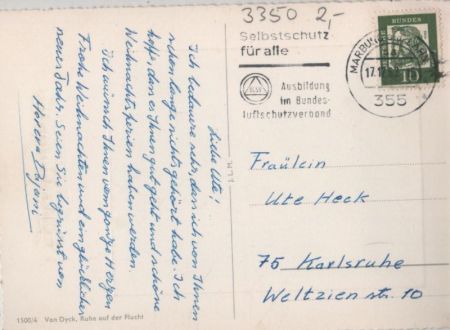 3350 2,-
Selbstschutz
für alle
Ausbildung
im Bundes-
luftschutzverband
BUNDES
10
MARBURG
17.12
355
Liebe Ute!
Ich bedaure sehr, daß ich von Ihnen
schon lange nichts gehört habe. Ich
hoffe, daß es Ihnen gut geht und schöne
Weihnachtsferien haben werden.
Ich wünsch Ihnen vom ganzen Herzen
Frohe Weihnachten und ein glückliches
neues Jahr. Seien Sie begrüsst von
Fräulein
Ute Heck
75 Karlsruhe
Weltzien str. 10
1500/4 Van Dyck, Ruhe auf der Flucht